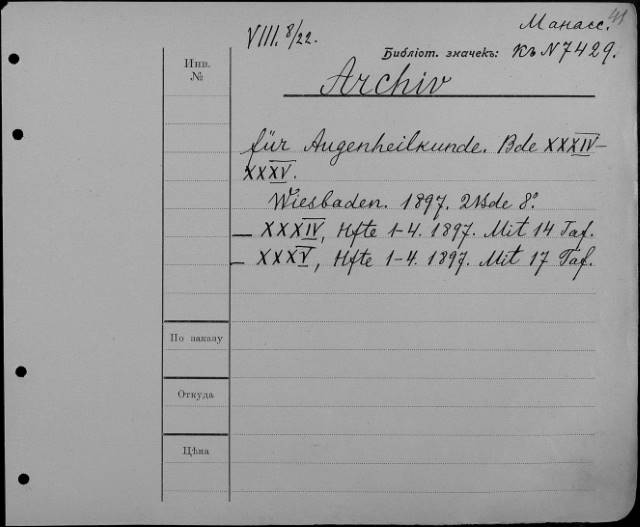 41
Манасс.
VIII. 8/22.
Библіот. значекъ: Къ N 7429.
Инв.
№
Archiv
für Augenheilkunde. Bde XXXIV–
XXXV.
Wiesbaden. 1897. 2 Bde 8º.
— XXXIV, Hfte 1-4. 1897. Mit 14 Taf.
— XXXV, Hfte 1-4. 1897. Mit 17 Taf.
По заказу
Откуда
Цѣна